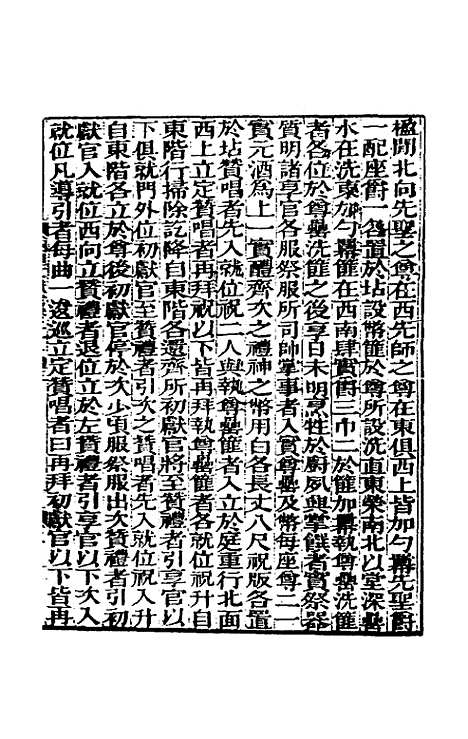 楹間北向先聖之尊在西先師之尊在東俱西上皆加勺冪先聖爵
一配座爵一各置於坫設幣篚於尊所設洗直東榮南北以堂深罍
水在洗東加勺冪篚在西南肆實爵三巾二於篚加冪執尊罍洗篚
者各位於尊罍洗篚之後享日未明烹牲於廚夙興掌饌者實祭器
質明諸享官各服祭服所司帥掌事者入實尊罍及幣每座尊二一
實元酒為上一實醴齊次之禮神之幣用白各長丈八尺祝版各置
於坫贊唱者先入就位祝二人與執尊罍篚者入立於庭重行北面
西上立定贊唱者再拜祝以下皆再拜執尊罍篚者各就位祝升自
東階行掃除訖降自東階各還齊所初獻官將至贊禮者引享官以
下俱就門外位初獻官至贊禮者引次之贊唱者先入就位祝入升
自東階各立於尊後初獻官停於次少頃服祭服出次贊禮者引初
獻官入就位西向立贊禮者退位立於左贊禮者引享官以下次入
就位凡導引者每曲一逡巡立定贊唱者曰再拜初獻官以下皆再